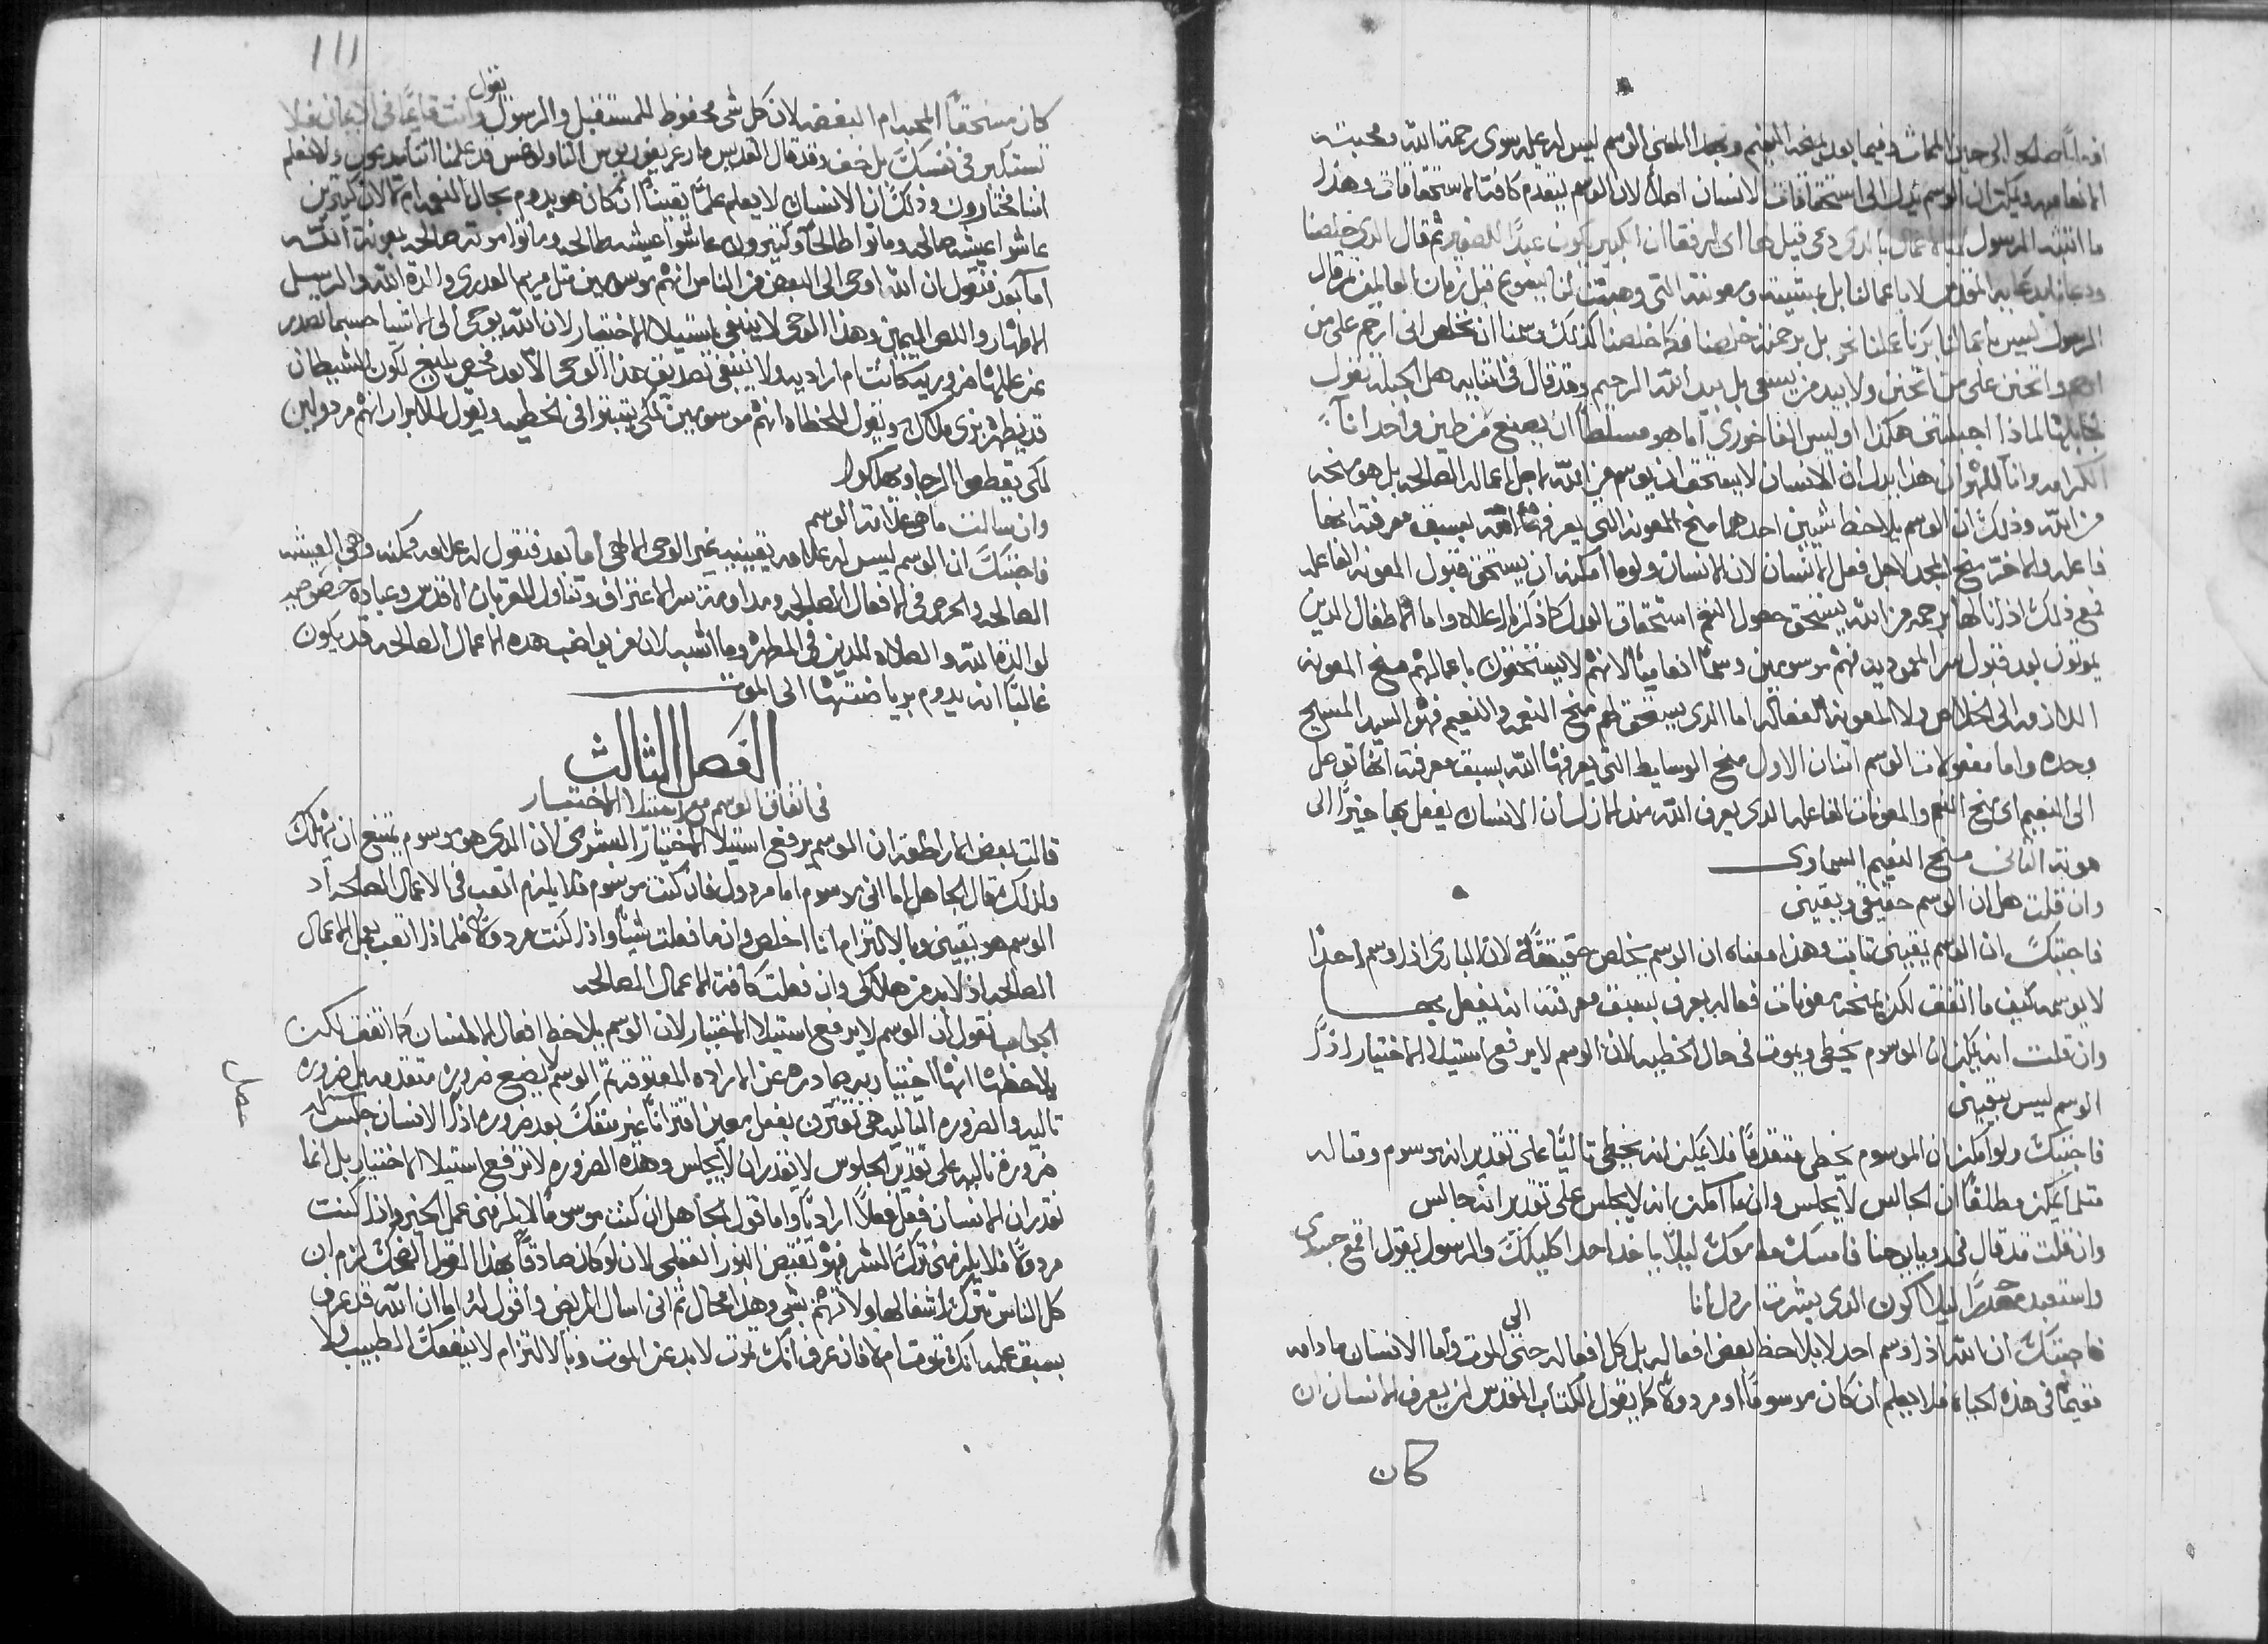 افعالًا صالحه الى حين الممات وفيما بعد يمنحه النعيم وبهذا المعنى الوسم ليس له عله سوى رحمة الله ومحبته
الانعاميه ويمكن ان الوسم يُنزل الى استحقاقات الانسان اصلًا لان الوسم يتقدم كافة الاستحقاقات وهذا
ما اثبته الرسول
ودعانا بدعايه المقدس لا باعمالنا بل بمشيته ومعونته التي وهبت لنا بيسوع قبل زمان العالمين ثم قال
الرسول ليس باعمالنا برنا عملنا نحن بل برحمته خلصنا فكما خلصنا كذلك وسمنا ان نخلص اني ارحم على من
ارحم واتحنن على من اتحنن ولا بيد من يسعى بل بيد الله الرحيم وقد قال في اثباته هل الجبله تقول
لجابلها لماذا اجبلتني هكذا او ليس الفاخوري اما هو مسلطًا ان يصنع من طين واحد اناءً
للكرامه واناء للهوان هذا يدل ان الانسان لا يستحق ان يوسم من الله لاجل اعماله الصالحه بل هو منحه
من الله وذلك ان الوسم يلاحظ شيين احدهما منح المعونه التي يعرفها الله بسبق معرفته انها
فاعله والاخر منح المجد لاجل فعل الانسان لان الانسان ولو ما امكنه ان يستحق قبول المعونه الفاعله
فمع ذلك اذ نالها برحمه من الله يستحق حصول النعيم استحقاق العدل كما ذكر اعلاه واما الاطفال الذين
يموتون بعد قبول سر المعموديه فهم موسومين وسمًا انعاميًا لانهم لا يستحقون باعمالهم منح المعونه
اللازمه الى الخلاص ولا المعونه الفعاله اما الذي يستحق لهم منح النعمه والنعيم فهو السيد المسيح
وحده واما مفعولات الوسم اثنان الاول منح الوسايط التي يعرفها الله بسبق معرفته انها توصل
الى النعيم اي منح النعم والمعونات الفاعله الذي يعرف الله منذ الازل ان الانسان يفعل بها خيرًا الى
موته الثاني منح النعيم السماوي
وان قلت هل ان الوسم حقيقي ويقيني
فاجبتك ان الوسم يقيني ثابت وهذا معناه ان الوسم يخلص حقيقةً لان الباري اذا وسم احدًا
لا يوسمه كيف ما اتفق لكن يمنحه معونات فعاله يعرف بسبق معرفته انه يفعل بها
وان قلت انه يمكن ان الموسوم يخطي ويموت في حال الخطيه لان الوسم لا يرفع استيلا الاختيار اذًا
الوسم ليس بيقيني
فاجبتك ولو امكن ان الموسوم يخطي متقدمًا فلا يمكن انه يخطي تاليًا على تقدير انه موسوم ومثاله
مثلما يمكن مطلقًا ان الجالس لا يجلس وان ما امكن انه لا يجلس على تقدير انه جالس
وان قلت قد قال في رويا يوحنا فامسك ما معك ليلا ياخذ احد اكليلك والرسول يقول اقمع جسدي
واستعبده حذرًا ليلا اكون الذي بشرت ارذل انا
فاجبتك ان الله اذا وسم احد لا يلاحظ بعض افعاله بل كل افعاله حتى الى الموت واما الانسان ما دام
مقيمًا في هذه الحياه فلا يعلم ان كان موسومًا او مردولًا كما يقول الكتاب المقدس لن يعرف الانسان ان
كان
١١١
كان مستحقًا المحبه ام البغضه لان كل شي محفوظ للمستقبل والرسول يقول وانت قايمًا في الايمان فلا
تستكبر في نفسك بل خف وقد قال القديس مار غريغوريوس الثاولوغس قد علمنا اننا مدعون ولا نعلم
اننا مختارون وذلك ان الانسان لا يعلم علمًا يقينًا ان كان هو يدوم بحال النعمه ام لا لان كثيرين
عاشوا عيشه صالحه وماتوا طالحًا وكثيرون عاشوا عيشه طالحه وماتوا موته صالحه بمعونة الله
اما بعد فنقول ان الله اوحى الى البعض من الناس انهم موسومين مثل مريم العدرى والدة الله والرسل
الاطهار واللص اليمين وهذا الوحي لا ينفي استيلا الاختيار لان الله يوحي الى الاشيا حسبما تصدر
عن عللها ضروريه كانت ام اراديه ولا ينبغي تصديق هذا الوحي الا بعد فحص بليغ لكون الشيطان
قد يظهر بزي ملاك ويقول للخطاه انهم موسومين لكي يثبتوا في الخطيه ويقول للابرار انهم مردولين
لكي يقطعوا الرجا ويهلكوا
وان سالت ما هي علامة الوسم
فاجبتك ان الوسم ليس له علامه يقينيه غير الوحي الالهي اما بعد فنقول له علامه ممكنه وهي العيشه
الصالحه والحرص في الافعال الصالحه ومداومة سر الاعتراف وتناول القربان الاقدس وعباده خصوصيه
لوالدة الله والصلاه للذين في المطهر وما اشبه لان من يواضب هذه الاعمال الصالحه قد يكون
غالبًا انه يدوم برياضتها الى الموت
الفصل الثالث
في اتفاق الوسم مع استيلا الاختيار
قالت بعض الاراطقه ان الوسم يرفع استيلا الاختيار البشري لان الذي هو موسوم يمتنع ان يهلك
ولذلك قال الجاهل اما اني موسوم اما مردول فان كنت موسوم فلا يلزم اتعب في الاعمال الصالحه اذ
الوسم هو يقيني وبالالتزام انا اخلص وان ما فعلت شيًا واذا كنت مردولًا فلماذا اتعب بعمل الاعمال
الصالحه اذ لا بد من هلاكي وان فعلت كافة الاعمال الصالحه
الجواب نقول ان الوسم لا يرفع استيلا الاختيار لان الوسم يلاحظ افعال الانسان كما اتفق لكن
يلاحظها انها اختياريه صادره عن الاراده المعتوقه ثم الوسم لا يضع ضروره متقدمه بل ضروره
تاليه والضروره التاليه هي تقترن بفعل معين اقترانًا غير منفك بعد ضروره اذًا الانسان جلس له
ضروره تاليه على تقدير الجلوس لا يقدر ان لا يجلس وهذه الضروره لا ترفع استيلا الاختيار بل انما
تقدر ان الانسان فعل فعلًا اراديًا واما قول الجاهل ان كنت موسومًا لا يلزمني عمل الخير واذا كنت
مردولًا فلا يلزمني ترك الشر فهو نقيض النور العقلي لان لو كان صادقًا بهذا القول المضحك لزم ان
كل الناس تترك اشغالها ولا تهتم بشي وهذا محال ثم اني اسال المريض واقول له اما ان الله قد عرف
بسبق علمه انك تموت ام لا فان عرف انك تموت لا بد عن الموت وبالالتزام لا ينفعك الطبيب ولا